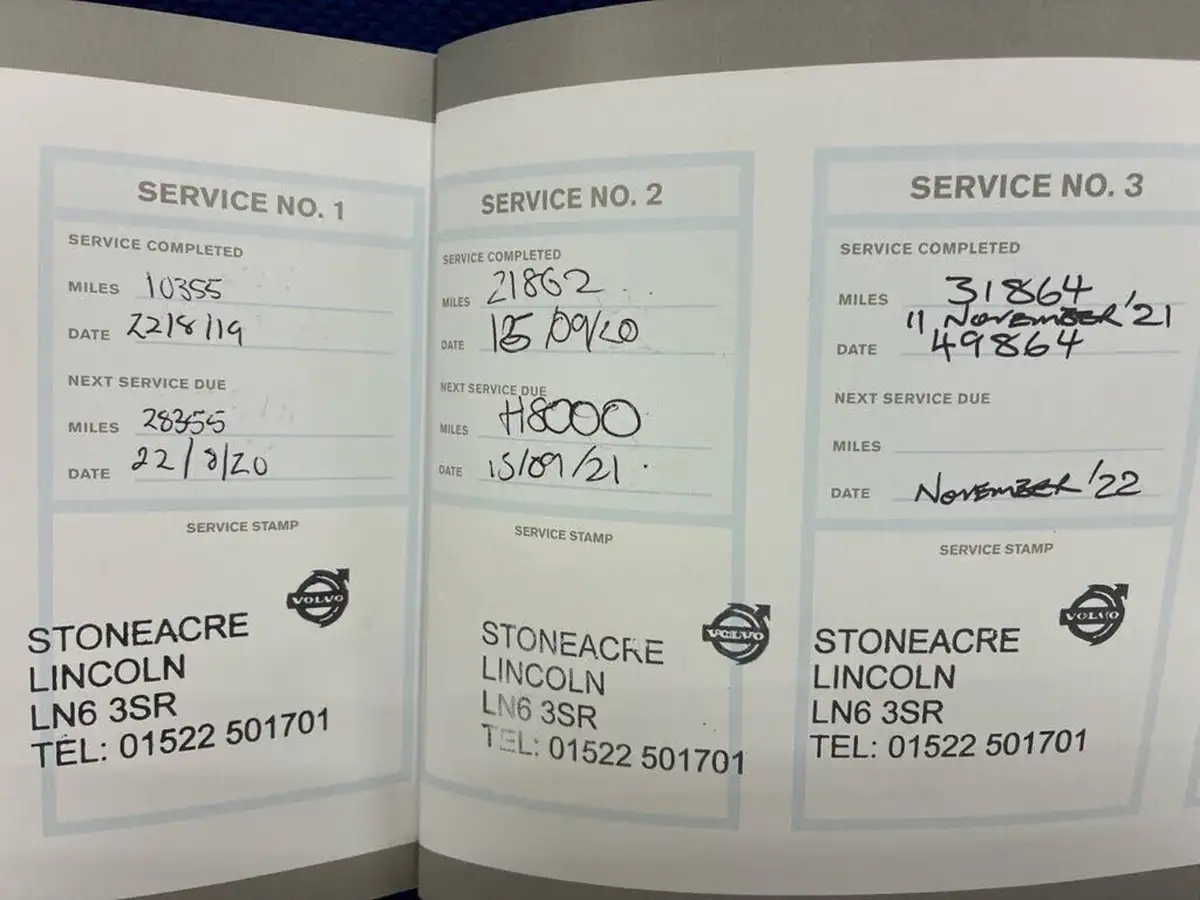 SERVICE NO. 1
SERVICE COMPLETED
MILES 10355
DATE 22/8/19
NEXT SERVICE DUE
MILES 28355
DATE 22/8/20
SERVICE STAMP
VOLVO
STONEACRE
LINCOLN
LN6 3SR
TEL: 01522 501701
SERVICE NO. 2
SERVICE COMPLETED
MILES 21862
DATE 15/09/20
NEXT SERVICE DUE
MILES H8000
DATE 15/09/21
SERVICE STAMP
VOLVO
STONEACRE
LINCOLN
LN6 3SR
TEL: 01522 501701
SERVICE NO. 3
SERVICE COMPLETED
MILES 31864
11 November '21
DATE 49864
NEXT SERVICE DUE
MILES
DATE November '22
SERVICE STAMP
VOLVO
STONEACRE
LINCOLN
LN6 3SR
TEL: 01522 501701